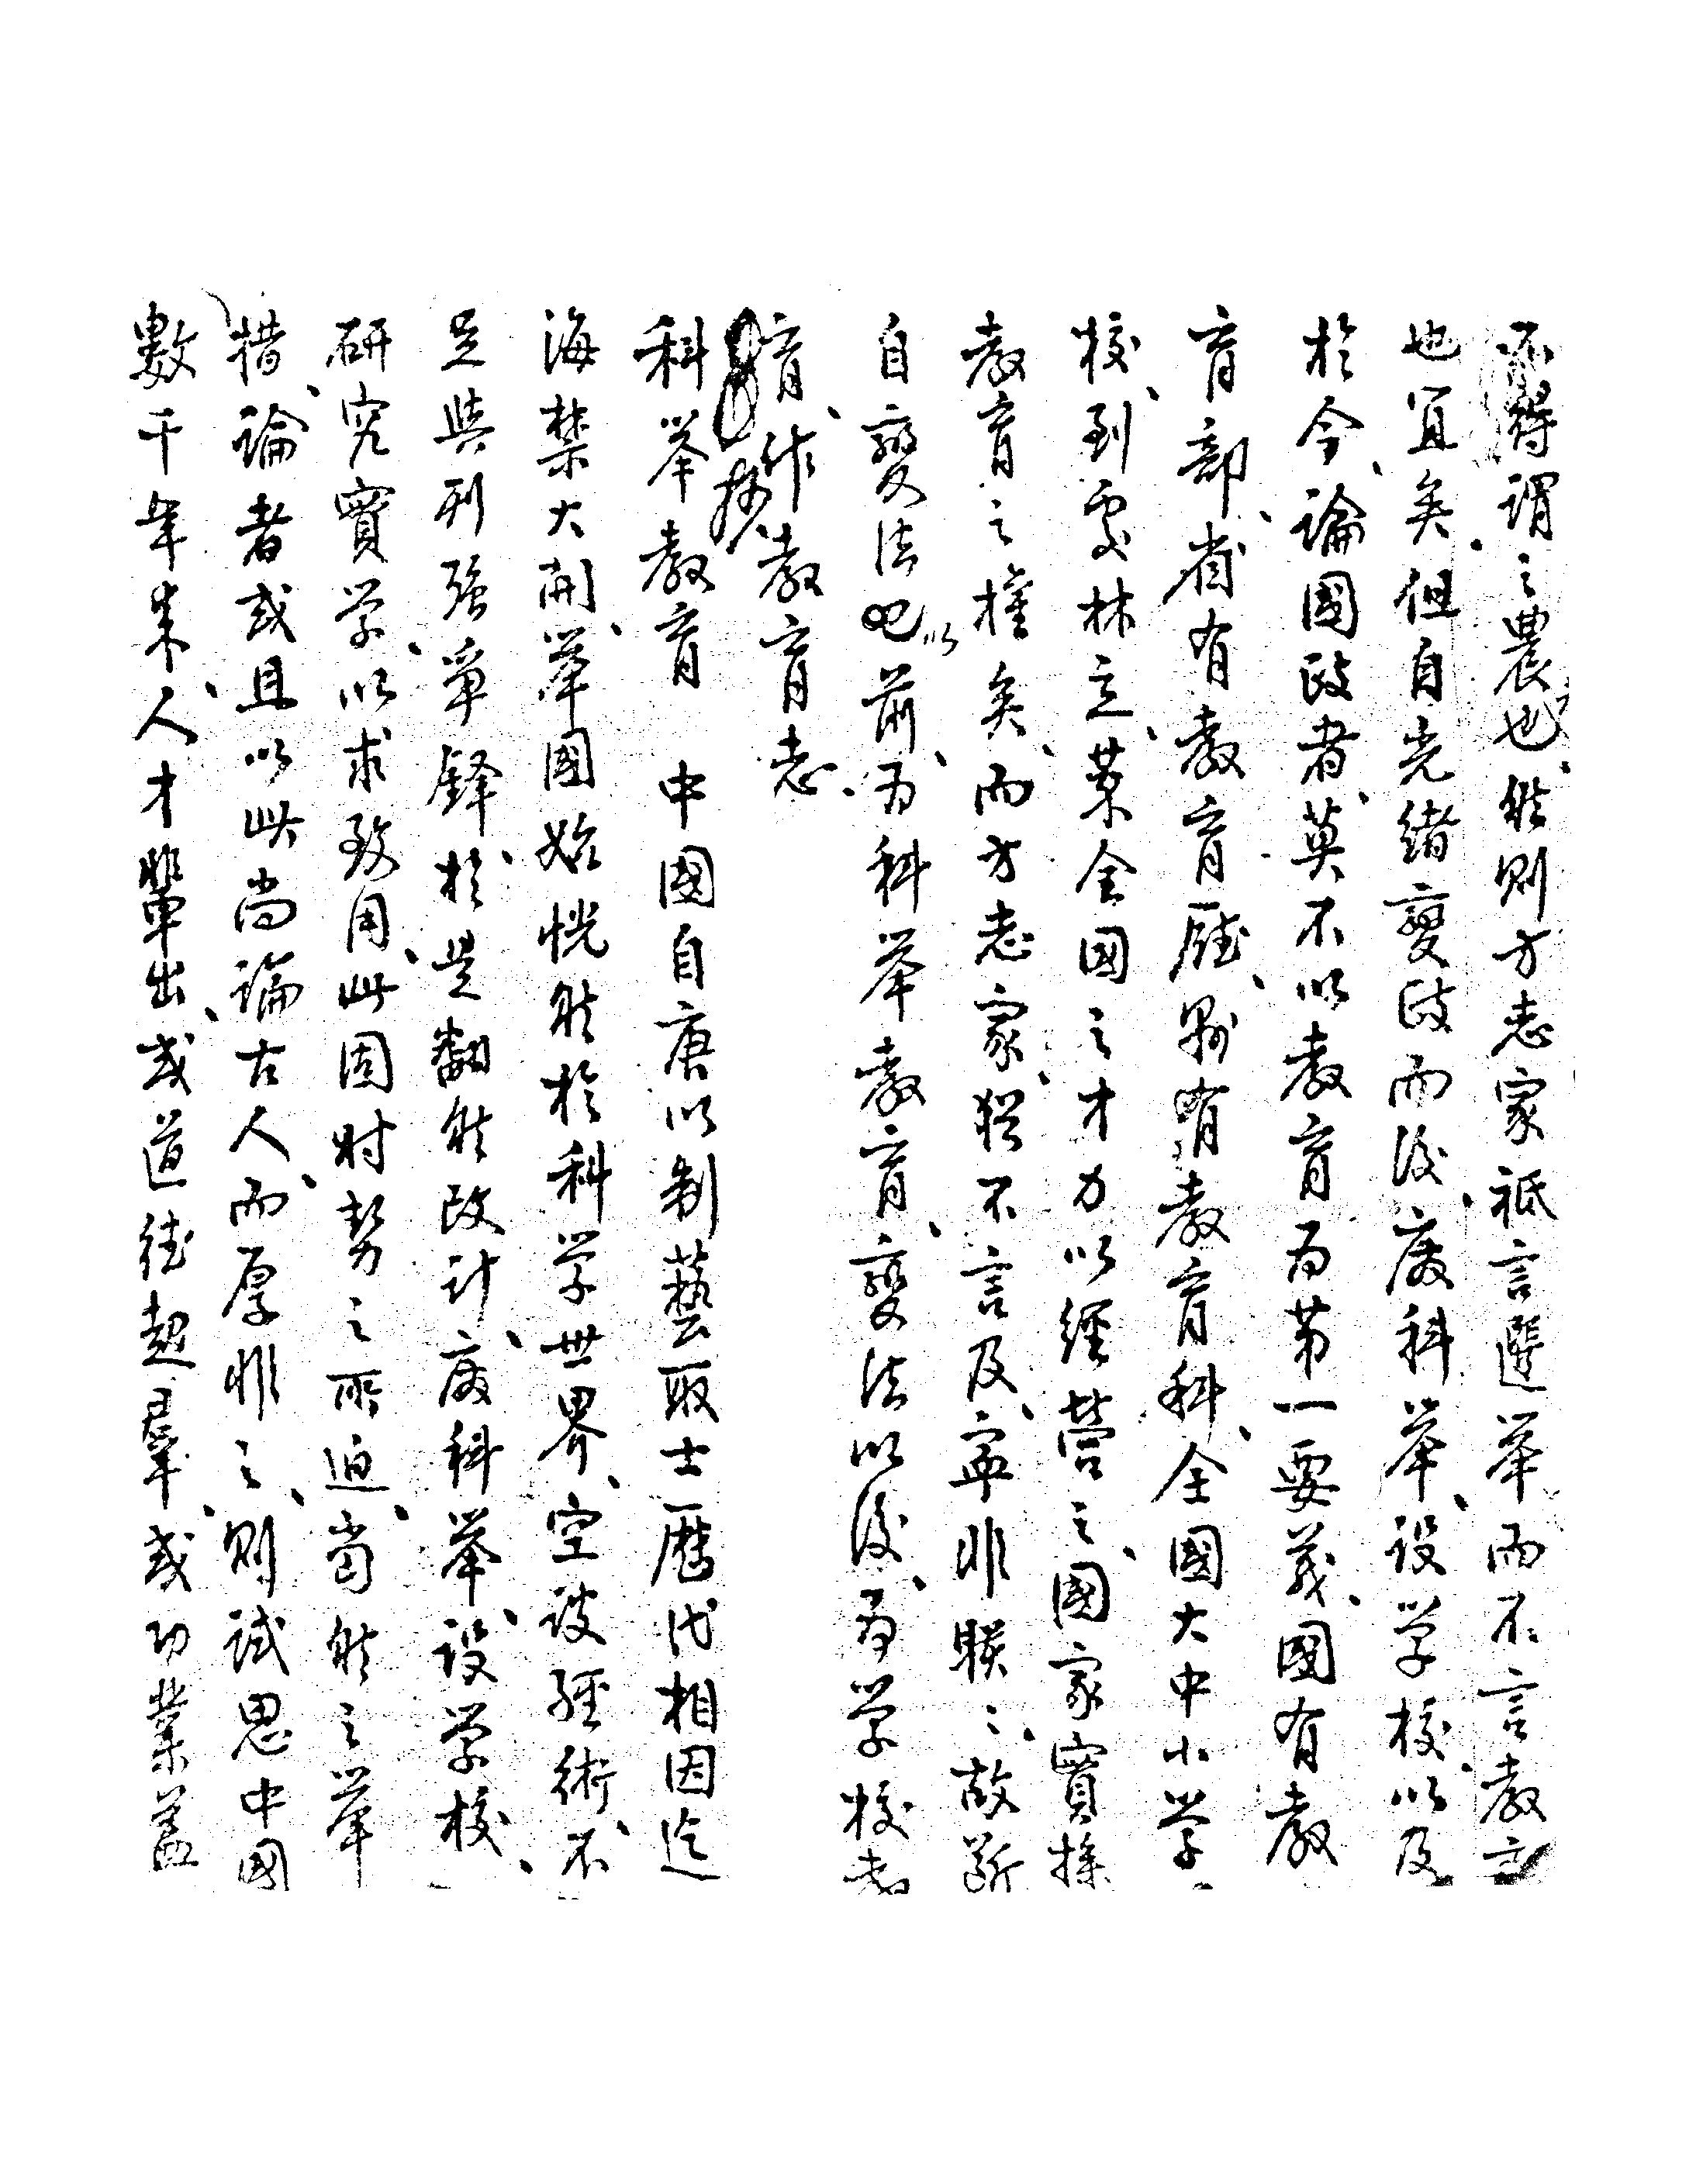 不得謂之農也、然則方志家祇言選舉而不言教育
也宜矣、但自光緒變政而後、廢科舉、設学校、以及
於今、論國政者、莫不以教育为第一要義、國有教
育部、省有教育廳、縣有教育科、全國大中小学
校、到處林立、萃全國之才力以經營之、國家實操
教育之權矣、而方志家、猶不言及、寧非
自變法以前、为科舉教育、變法以後、为学校教
育、作教育志、
科舉教育　中國自唐以制藝取士歷代相因迄
海禁大開、舉國始恍然於科学世界、空谈經術、不
足與列強争鋒、於是翻然改计、廢科舉、設学校、
研究實学、以求致用、此固时势之所迫、當然之舉
措、論者或且以此尚論古人、而厚非之、則試思中國
數千年来、人才輩出、或道德超羣、或功業蓋